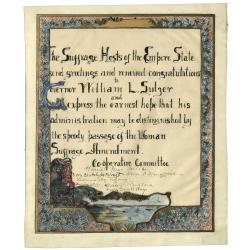 The Suffrage Hosts of the Empire State
send greetings and renewed congratulations
to
Governor William L. Sulzer
and
express the earnest hope that his
administration may be distinguished by
the speedy passage of the Woman
Suffrage Amendment.
Co-operative Committee